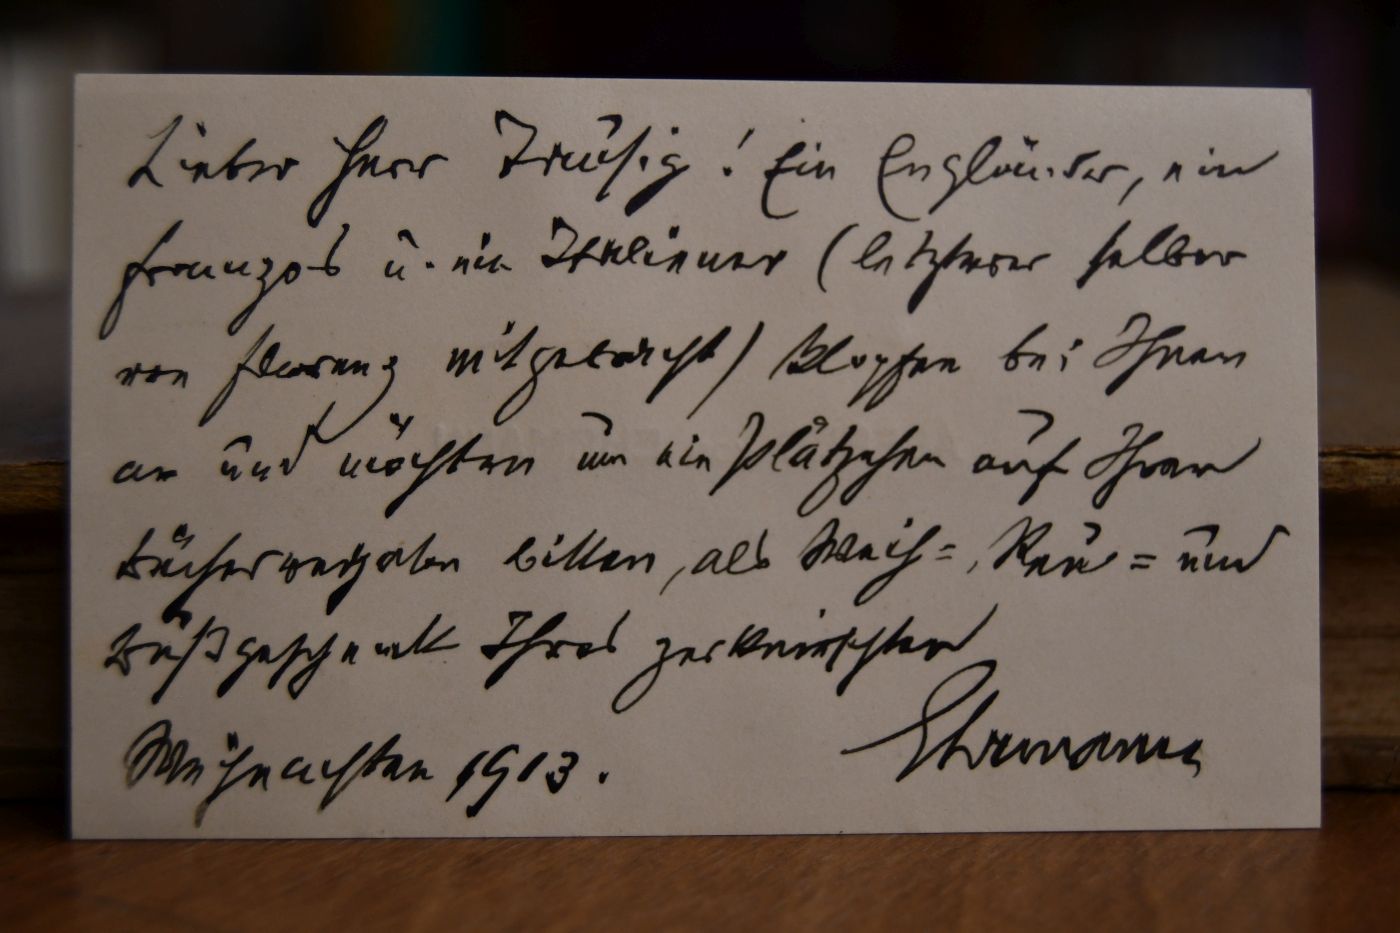 Lieber Herr Träusig! Ein Engländer, ein
Franzos u. ein Italiener (letzterer selber
von Florenz mitgebracht) klopfen bei Ihnen
an und möchten um ein Plätzchen auf Ihren
Bücherregalen bitten, als Weih=, Reu= und
Bußgeschenk Ihres zerknirschten
Ehrmann
Weihnachten 1913.